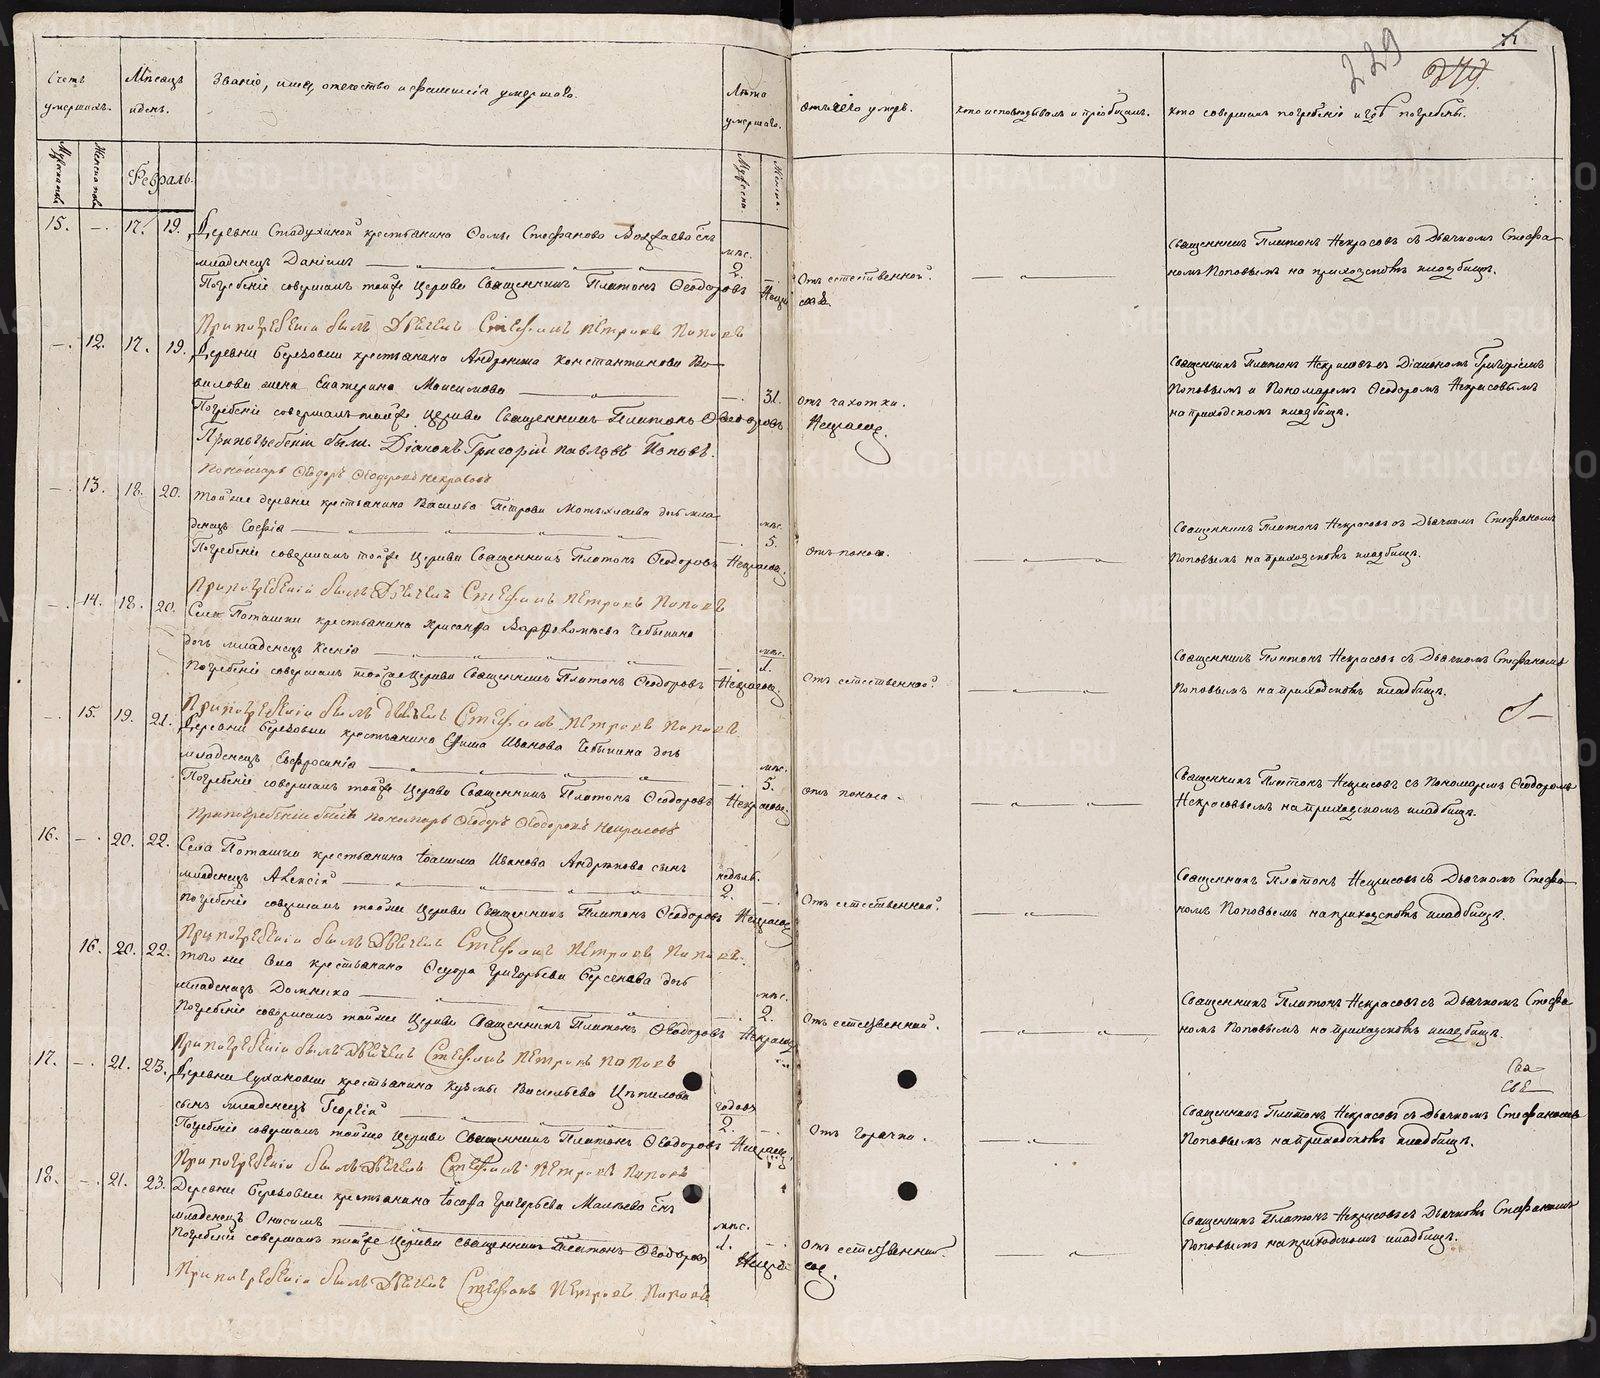 229
Счетъ умершихъ.
Мѣсяцъ и день.
Званіе, имя, отечество и фамилія умершаго.
Лѣта умершаго.
отъ чего умеръ.
кто исповѣдывалъ и пріобщалъ.
кто совершалъ погребеніе и гдѣ погребены.
Мужеска пола
Женска пола
Февраль.
Мужеска.
Женска.
15. — 17. 19. Деревни Стадухиной крестьянина Ѳомы Стефанова сынъ
младенецъ Даніилъ
мѣс. 2.
Отъ естественной
Погребеніе совершалъ тойже Церкви Священникъ Платонъ Ѳеодоровъ
При погребеніи былъ Дьячекъ Стефанъ Петровъ Поповъ
Священникъ Платонъ Некрасовъ съ Дьячкомъ Стефа-
номъ Поповымъ на приходскомъ кладбищѣ.
— 12. 17. 19. Деревни Березовки крестьянина Андроника Константинова Ва-
вилова жена Екатерина Моисимова
31. отъ чахотки.
Погребеніе совершалъ тойже Церкви Священникъ Платонъ Ѳеодоровъ Некрасовъ
При погребеніи были. Діаконъ Григорій Павловъ Поповъ.
Пономарь Ѳеодоръ Ѳеодоровъ Некрасовъ
Священникъ Платонъ Некрасовъ съ Діакономъ Григоріемъ
Поповымъ и Пономаремъ Ѳеодоромъ Некрасовымъ
на приходскомъ кладбищѣ.
— 13. 18. 20. Тойже деревни крестьянина Василья Петрова дочь мла-
денецъ Софія
мѣс. 5.
отъ поноса.
Погребеніе совершалъ тойже Церкви Священникъ Платонъ Ѳеодоровъ Некрасовъ.
При погребеніи былъ Дьячекъ Стефанъ Петровъ Поповъ
Священникъ Платонъ Некрасовъ съ Дьячкомъ Стефаномъ
Поповымъ на приходскомъ кладбищѣ.
— 14. 18. 20. Села Поташки крестьянина Хрисанфа Варфоломеева Чебыкина
дочь младенецъ Ксенія
мѣс. 1.
Отъ естественной.
Погребеніе совершалъ тойже Церкви Священникъ Платонъ Ѳеодоровъ Некрасовъ.
При погребеніи былъ Дьячекъ Стефанъ Петровъ Поповъ.
Священникъ Платонъ Некрасовъ съ Дьячкомъ Стефаномъ
Поповымъ на приходскомъ кладбищѣ.
— 15. 19. 21. Деревни Березовки крестьянина Ефима Иванова Чебыкина дочь
младенецъ Евфросинія
мѣс. 5.
отъ поноса.
Погребеніе совершалъ тойже Церкви Священникъ Платонъ Ѳеодоровъ Некрасовъ.
При погребеніи былъ пономарь Ѳеодоръ Ѳеодоровъ Некрасовъ
Священникъ Платонъ Некрасовъ съ Пономаремъ Ѳеодоромъ
Некрасовымъ на приходскомъ кладбищѣ.
16. — 20. 22. Села Поташки крестьянина Іоакима Иванова сынъ
младенецъ Алексій
недѣль. 2.
Отъ естественной.
Погребеніе совершалъ тойже Церкви Священникъ Платонъ Ѳеодоровъ Некрасовъ
При погребеніи былъ Дьячекъ Стефанъ Петровъ Поповъ.
Священникъ Платонъ Некрасовъ съ Дьячкомъ Стефа-
номъ Поповымъ на приходскомъ кладбищѣ.
16. 20. 22. Того же села крестьянина Ѳедора Григорьева Берсенева дочь
младенецъ Домника
мѣс. 2.
Отъ естественной.
Погребеніе совершалъ тойже Церкви Священникъ Платонъ Ѳеодоровъ Некрасовъ
При погребеніи былъ Дьячекъ Стефанъ Петровъ Поповъ
Священникъ Платонъ Некрасовъ съ Дьячкомъ Стефа-
номъ Поповымъ на приходскомъ кладбищѣ.
17. — 21. 23. Деревни Сухановки крестьянина Кузьмы Васильева Цѣпилова
сынъ младенецъ Георгій
годовъ 2.
Отъ горячки.
Погребеніе совершалъ тойже Церкви Священникъ Платонъ Ѳеодоровъ Некрасовъ
При погребеніи былъ Дьячекъ Стефанъ Петровъ Поповъ
Священникъ Платонъ Некрасовъ съ Дьячкомъ Стефаномъ
Поповымъ на приходскомъ кладбищѣ.
18. — 21. 23. Деревни Березовки крестьянина Іосафа Григорьева сынъ
младенецъ Онисимъ
мѣс. 1.
Отъ естественной.
Погребеніе совершалъ тойже Церкви Священникъ Платонъ Ѳеодоровъ Некрасовъ.
При погребеніи былъ Дьячекъ Стефанъ Петровъ Поповъ
Священникъ Платонъ Некрасовъ съ Дьячкомъ Стефаномъ
Поповымъ на приходскомъ кладбищѣ.
METRIKI.GASO-URAL.RU